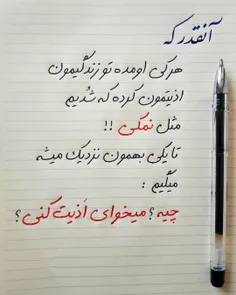 آنقدر که
هرکی اومده تو زندگیمون
اذیتمون کرده که شدیم
مثل نمکی !!
تا یکی بهمون نزدیک میشه
میگیم :
چیه ؟ میخوای اَذیت کنی ؟